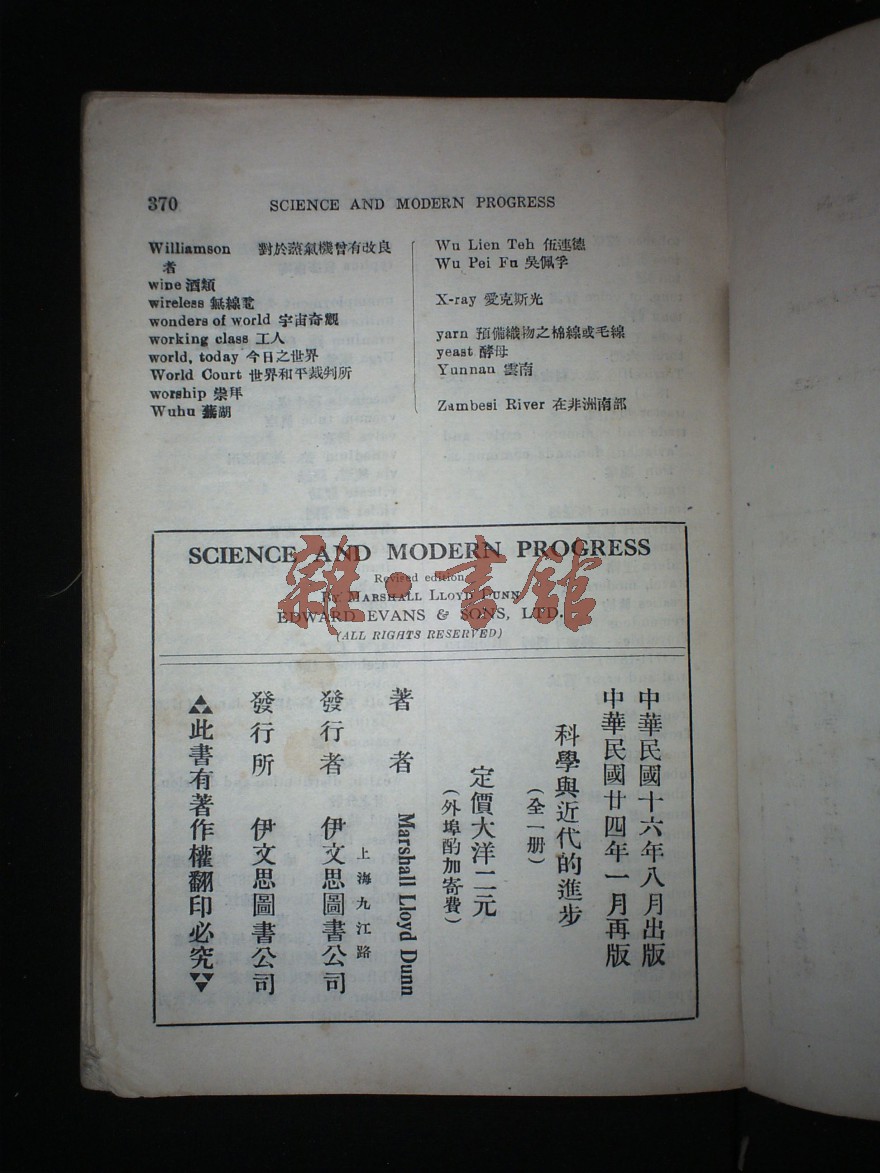 370 SCIENCE AND MODERN PROGRESS
Williamson 對於蒸氣機曾有改良
者
wine 酒類
wireless 無線電
wonders of world 宇宙奇觀
working class 工人
world, today 今日之世界
World Court 世界和平裁判所
worship 崇拜
Wuhu 蕪湖
Wu Lien Teh 伍連德
Wu Pei Fu 吳佩孚
X-ray 愛克斯光
yarn 預備織物之棉線或毛線
yeast 酵母
Yunnan 雲南
Zambesi River 在非洲南部
SCIENCE AND MODERN PROGRESS
Revised edition
By MARSHALL LLOYD DUNN
EDWARD EVANS & SONS, LTD.
(ALL RIGHTS RESERVED)
雜·書館
中華民國十六年八月出版
中華民國廿四年一月再版
科學與近代的進步
(全一册)
定價大洋二元
(外埠酌加寄費)
著者 Marshall Lloyd Dunn
上海九江路
發行者 伊文思圖書公司
發行所 伊文思圖書公司
此書有著作權翻印必究